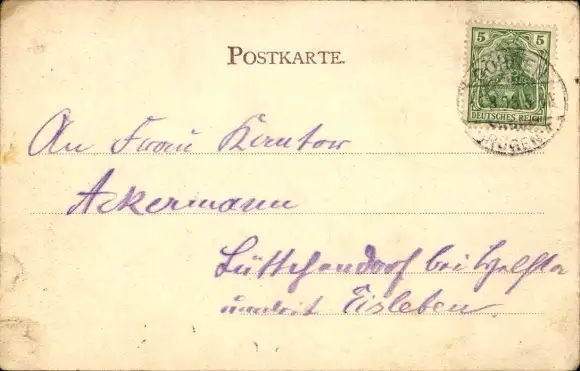 POSTKARTE.
5 5
DEUTSCHES REICH
GÖHREN
RÜGEN
An Frau Kantor
Ackermann
Lüttchendorf bei
unweit Eisleben.